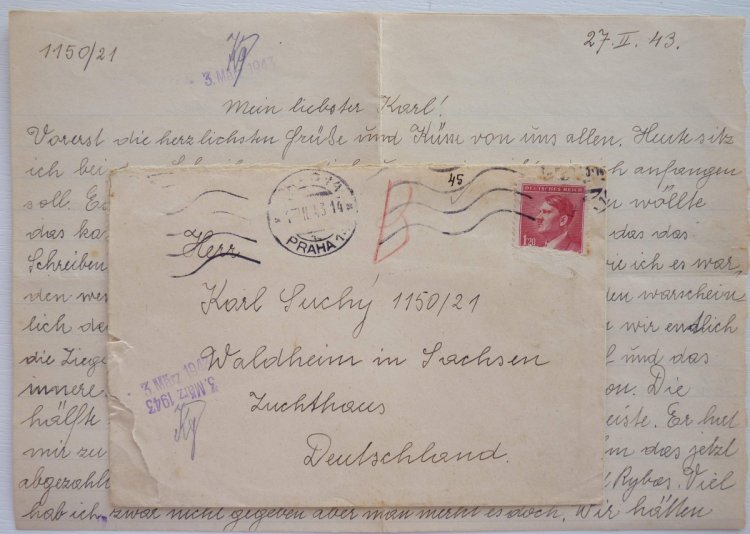 1150/21
27. II. 43.
3. März 1943
Mein liebster Karl!
Vorerst die herzlichsten Grüße und Küsse von uns allen. Heute sitz
ich bei anfangen
soll. wöllte
das das das
Schreiben wie ich es war,
den warschein
lich wir endlich
die Ziege und das
innere. Die
hälfte Er hat
mir zu das jetzt
abgezahlt Rybas. Viel
hab ich zwar nicht gegeben aber man merkt es doch. Wir hätten
PRAHA 1
II. 43-14
45
B
DEUTSCHES REICH
1.20
Herr
Karl Suchý 1150/21
Waldheim in Sachsen
Zuchthaus
Deutschland.
3. März 1943